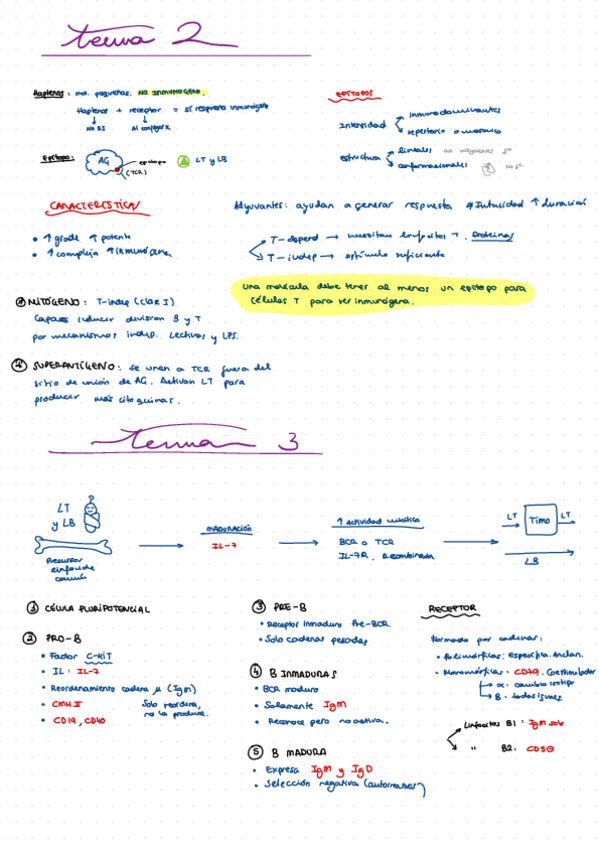 tema 2
Haptenos: mol. pequeñas. No inmunógeno.
Hapteno + receptor = sí respuesta inmunógena
No RI
Al conjugarx
Epítopo:
AG
epítopo
(TCR)
LT y LB
EPÍTOPOS
Intensidad
inmunodominantes
repertorio o
estructura
lineales
conformacionales
CARACTERÍSTICAS
Adyuvantes: ayudan a generar respuesta ↑ Intensidad ↑ duración
• ↑ grande ↑ potente
• ↑ compleja ↑ inmunógena
T-depend → necesitan linfocitos T. Proteínas
T-indep → estímulo suficiente
Una molécula debe tener al menos un epítopo para
células T para ser inmunógena.
MITÓGENO: T-indep (clase I)
Capaces inducir división B y T
por mecanismos indep. Lectinas y LPS.
④ SUPERANTÍGENO: se unen a TCR fuera del
sitio de unión de AG. Activan LT para
producir más citoquinas.
Tema 3
LT
y LB
Precursor
linfoide
común
MADURACIÓN
IL-7
↑ Actividad
BCR o TCR
IL-7R. Recombinada
LT
Timo
LT
LB
① CÉLULA PLURIPOTENCIAL
② PRO-B
• Factor C-KIT
• IL: IL-7
• Reordenamiento cadena μ (IgM)
Solo reordena,
no la produce.
• CMH II
• CD19, CD40
③ PRE-B
• Receptor inmaduro Pre-BCR
• Solo cadenas pesadas
④ B INMADURAS
• BCR maduro
• Solamente IgM
• Reconoce pero no activa.
⑤ B MADURA
• Expresa IgM y IgD
• Selección negativa (autorreactivas)
RECEPTOR
Formado por cadenas:
• Polimórficas: Específica. Anclan.
• Monomórficas: CD79. Coestimulador
α: cambio isotipo
B: todas iguales
Linfocitos B1: IgM solo
" B2: CD50